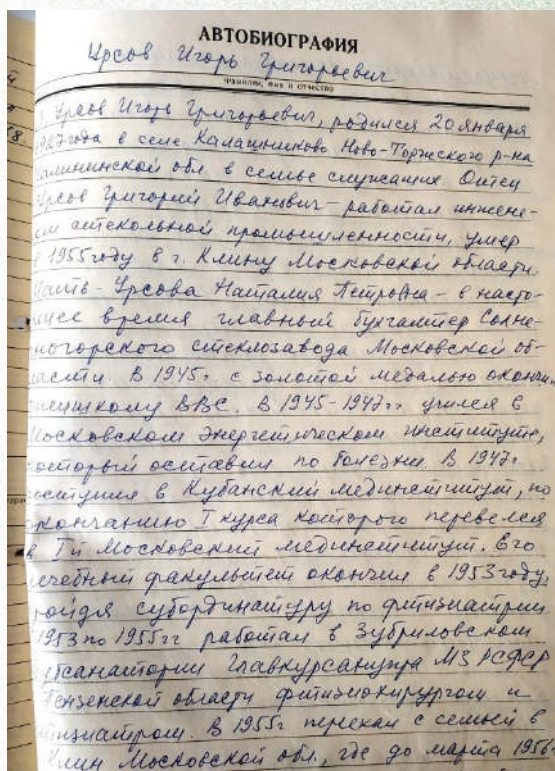 АВТОБИОГРАФИЯ
Урсов Игорь Григорьевич
фамилия, имя и отчество
Я, Урсов Игорь Григорьевич, родился 20 января
1927 года в селе Калашниково Ново-Торжского р-на
Калининской обл. в семье служащих. Отец
Урсов Григорий Иванович - работал инжене-
ром стекольной промышленности, умер
в 1955 году в г. Клину Московской области.
Мать - Урсова Наталия Петровна - в насто-
ящее время главный бухгалтер Солне-
чногорского стеклозавода Московской об-
ласти. В 1945г. с золотой медалью окончил
спецшколу ВВС. В 1945-1947гг учился в
Московском Энергетическом институте,
который оставил по болезни. В 1947г
поступил в Кубанский мединститут, по
окончанию I курса которого перевелся
в I й Московский мединститут. Его
лечебный факультет окончил в 1953 году,
пройдя субординатуру по фтизиатрии.
С 1953 по 1955гг работал в Зубриловском
тубсанатории Главкурсанупра МЗ РСФСР
Пензенской области фтизиохирургом и
фтизиатром. В 1955г переехал с семьей в
Клин Московской обл., где до марта 1956г